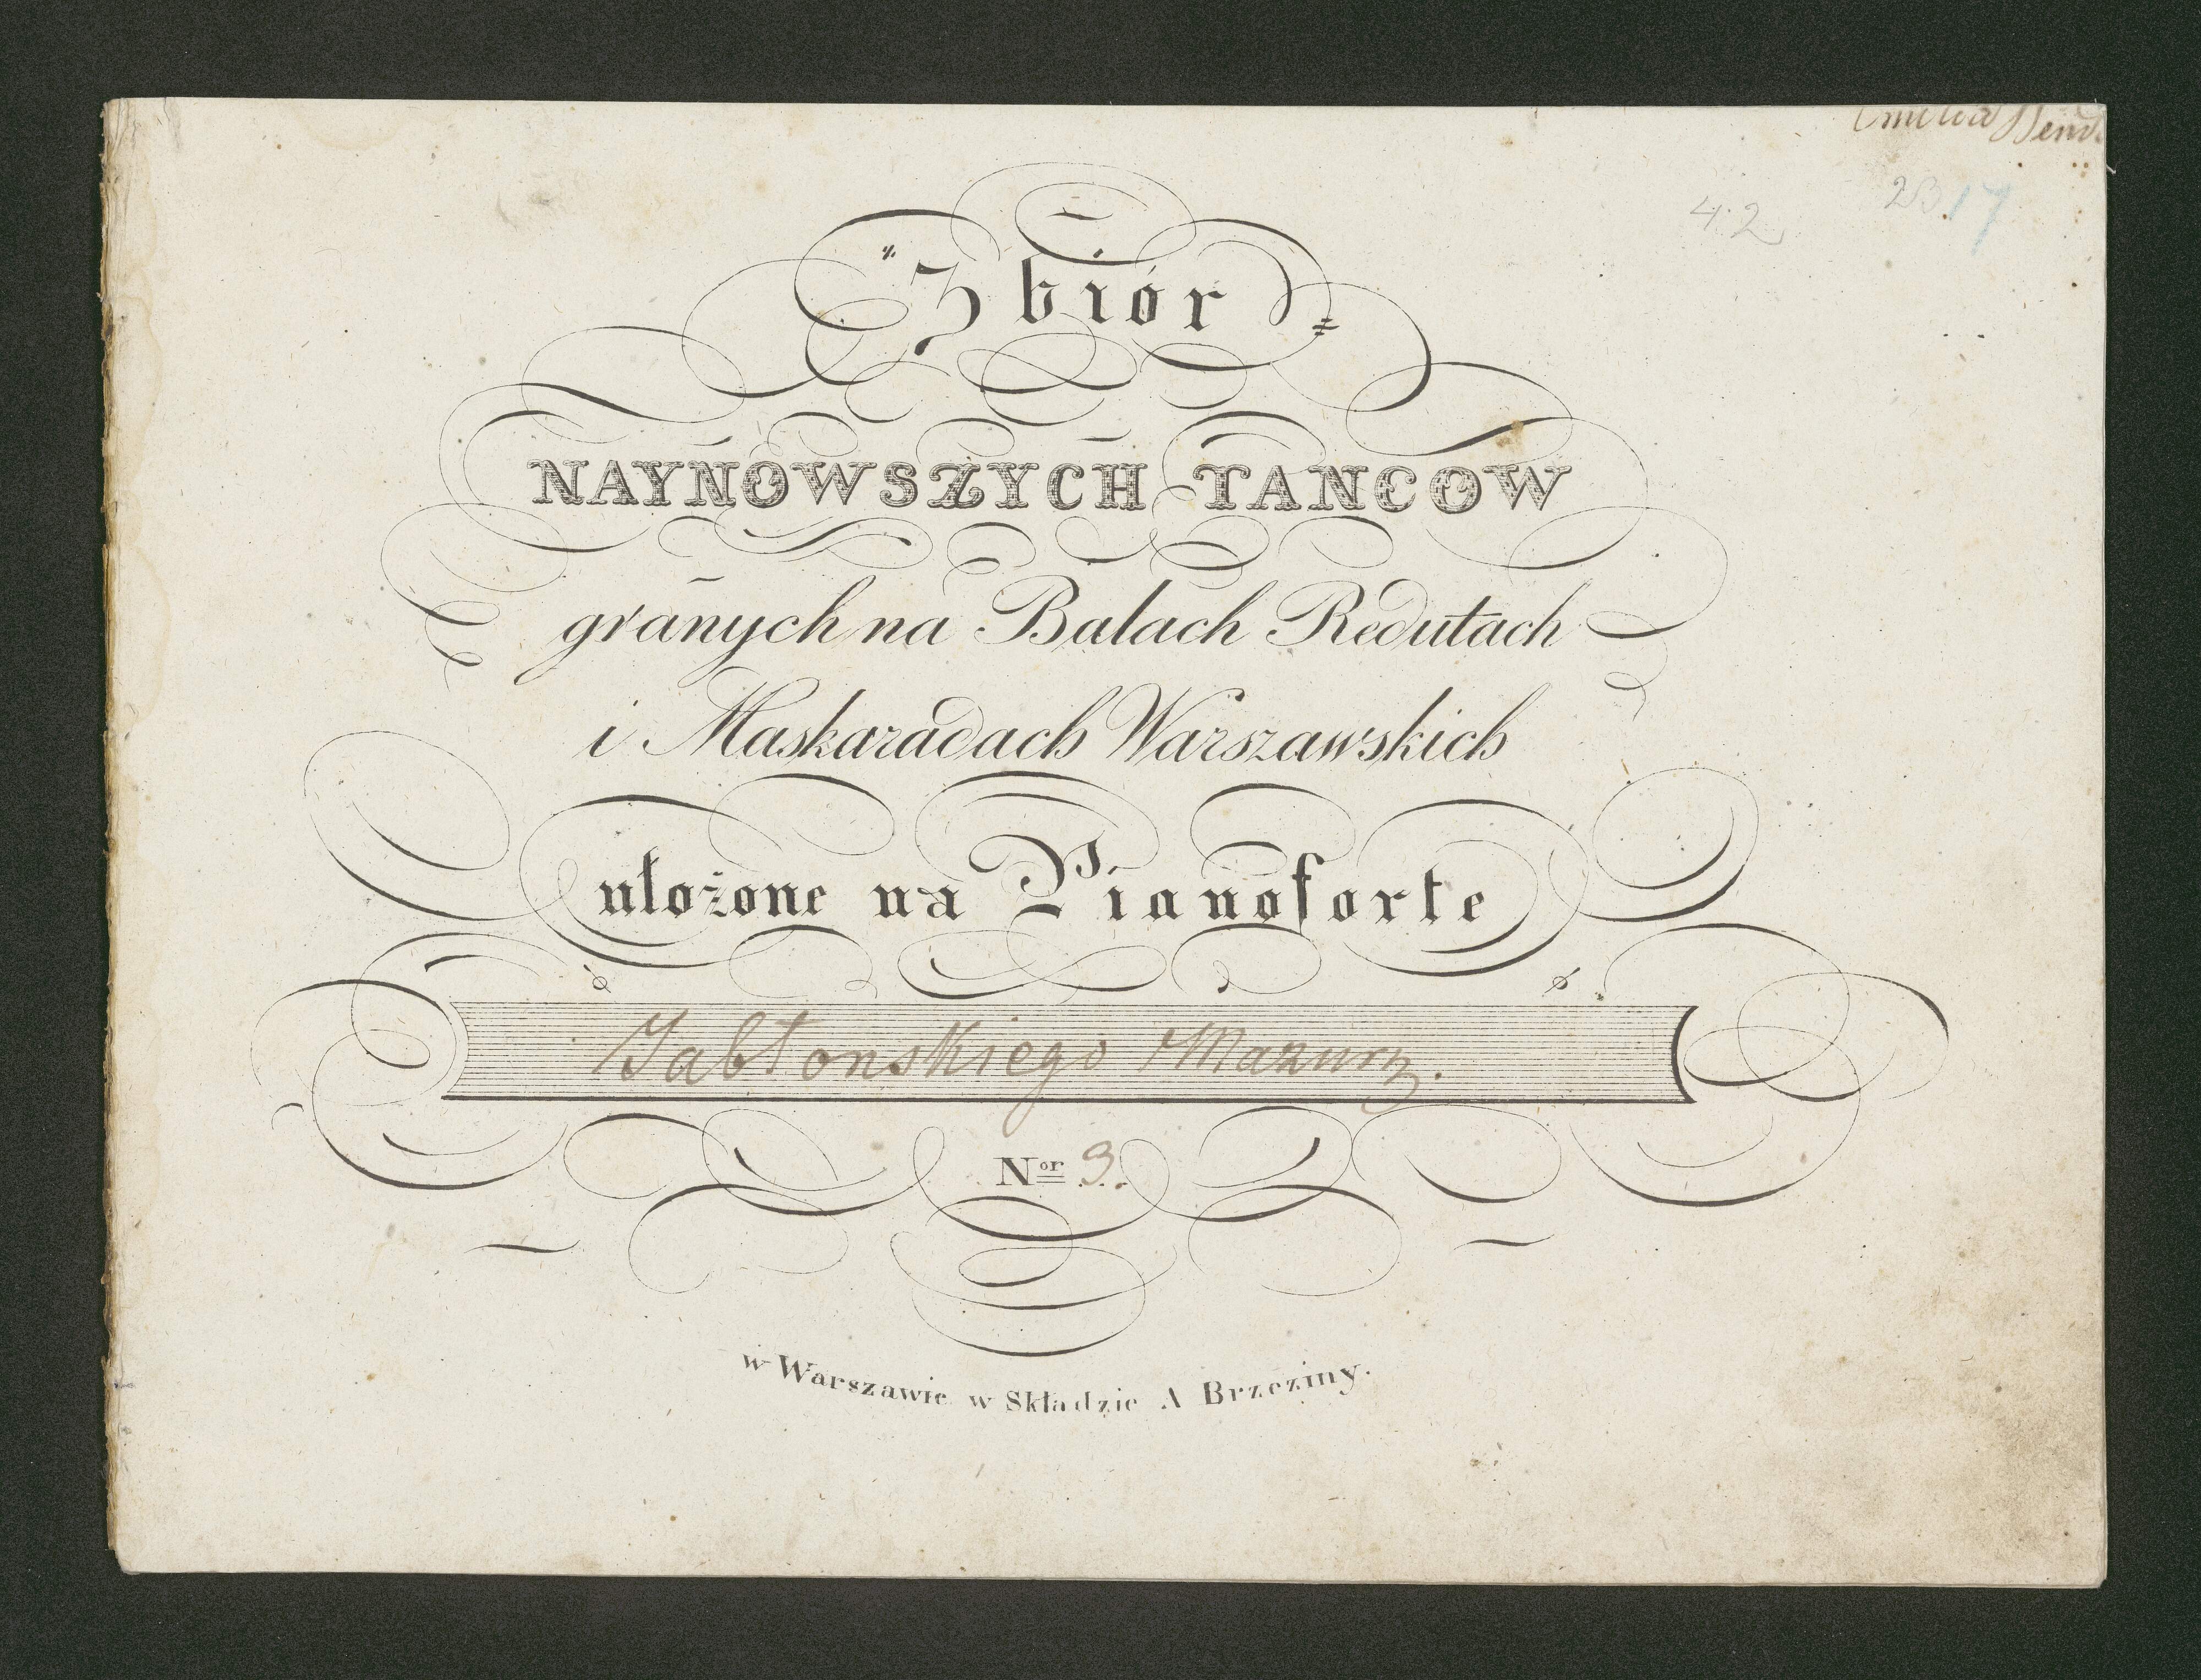 Emilia
4.2 17
Zbiór
NAYNOWSZYCH TANCOW
granych na Balach Redutach
i Maskaradach Warszawskich
ułożone na Pianoforte
Jabłonskiego Mazurz.
Nor 9.
w Warszawie w Składzie A Brzeziny.